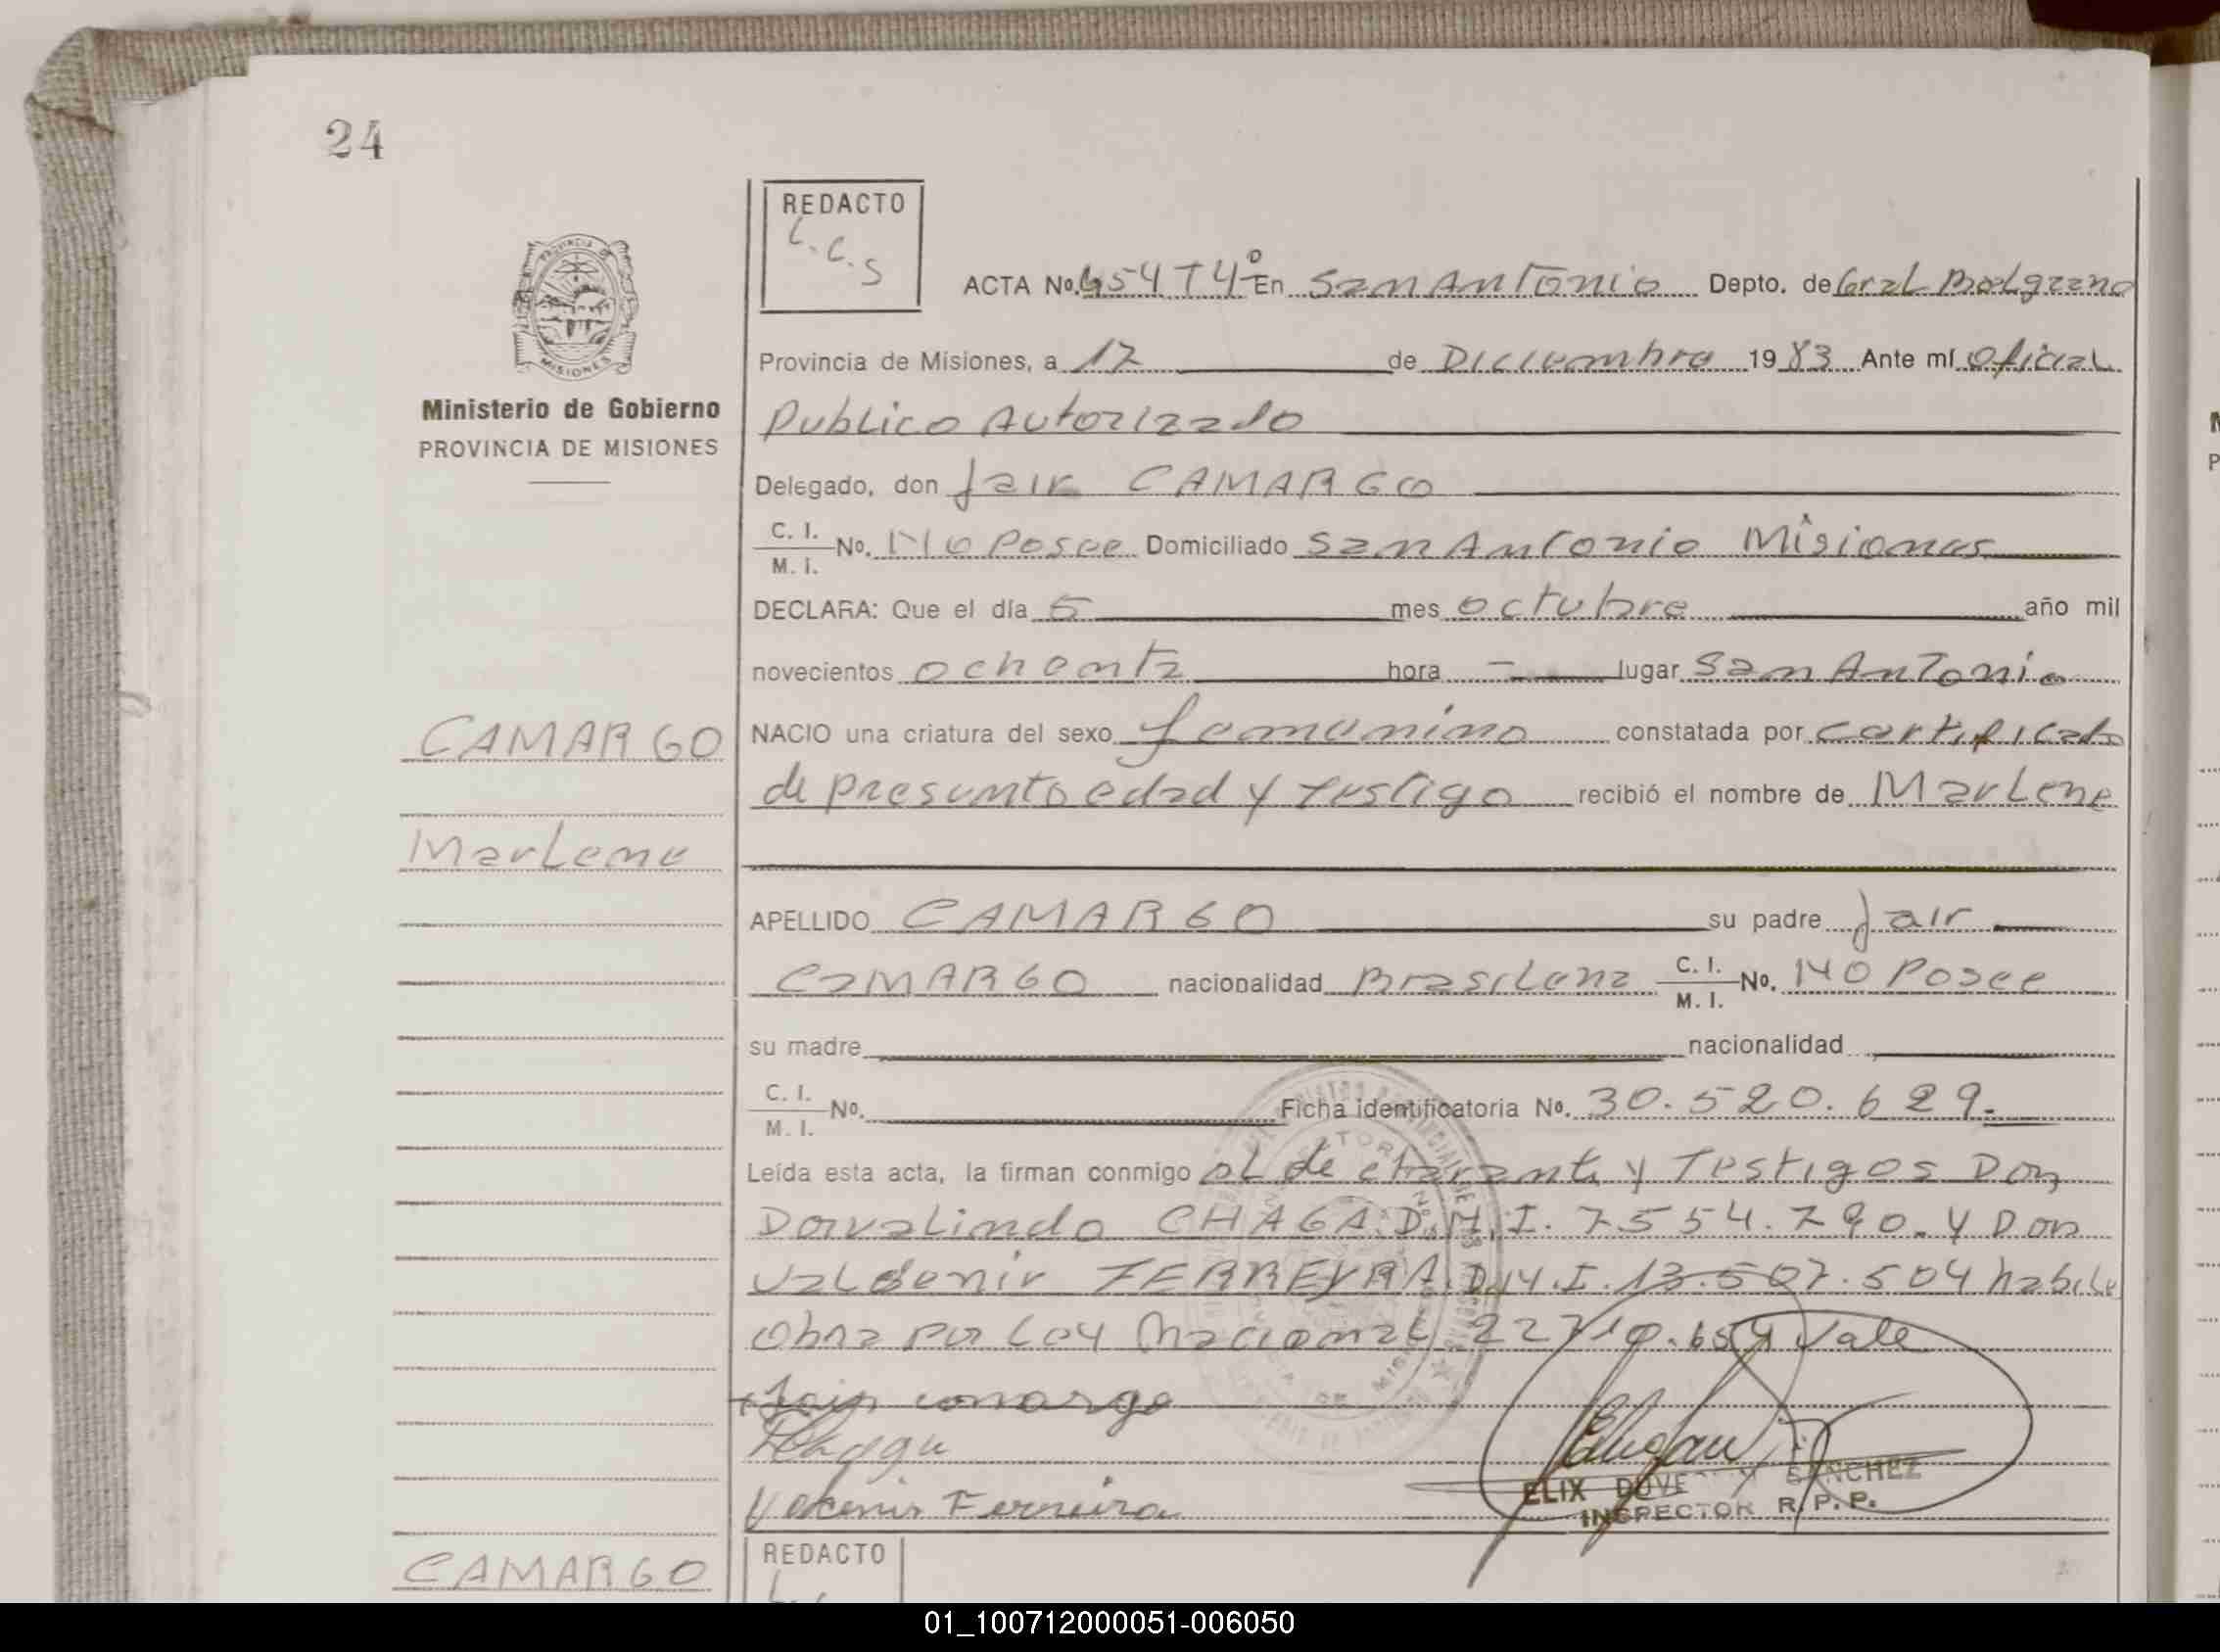 24
REDACTO
L.C.S
ACTA No. 654 T4º En San Antonio Depto. de Gral Belgrano
Provincia de Misiones, a 17 de Diciembre 1983 Ante mí Oficial
Publico Autorizado
Ministerio de Gobierno
PROVINCIA DE MISIONES
Delegado, don Jair CAMARGO
C. I.
M. I. No. No Posee Domiciliado San Antonio Misiones
DECLARA: Que el día 5 mes octubre año mil
novecientos ochenta hora - lugar San Antonio
CAMARGO
NACIO una criatura del sexo femenino constatada por certificado
de presunto edad y testigo recibió el nombre de Marlene
Marlene
APELLIDO CAMARGO su padre Jair
CAMARGO nacionalidad Brasilena C. I.
M. I. No. No Posee
su madre nacionalidad
C. I.
M. I. No. Ficha identificatoria No. 30.520.629.
Leída esta acta, la firman conmigo el declarante y Testigos Don
Dorvalindo CHAGA. D.N.I. 7554.790. y Don
Valdenir FERREYRA. D.N.I. 13.507.504 habile
Obra por Ley Nacional 22710. 654 Vale
Jair Camargo
Ferreira
ELIX SANCHEZ
INSPECTOR R.P.P.
CAMARGO
REDACTO
01_100712000051-006050